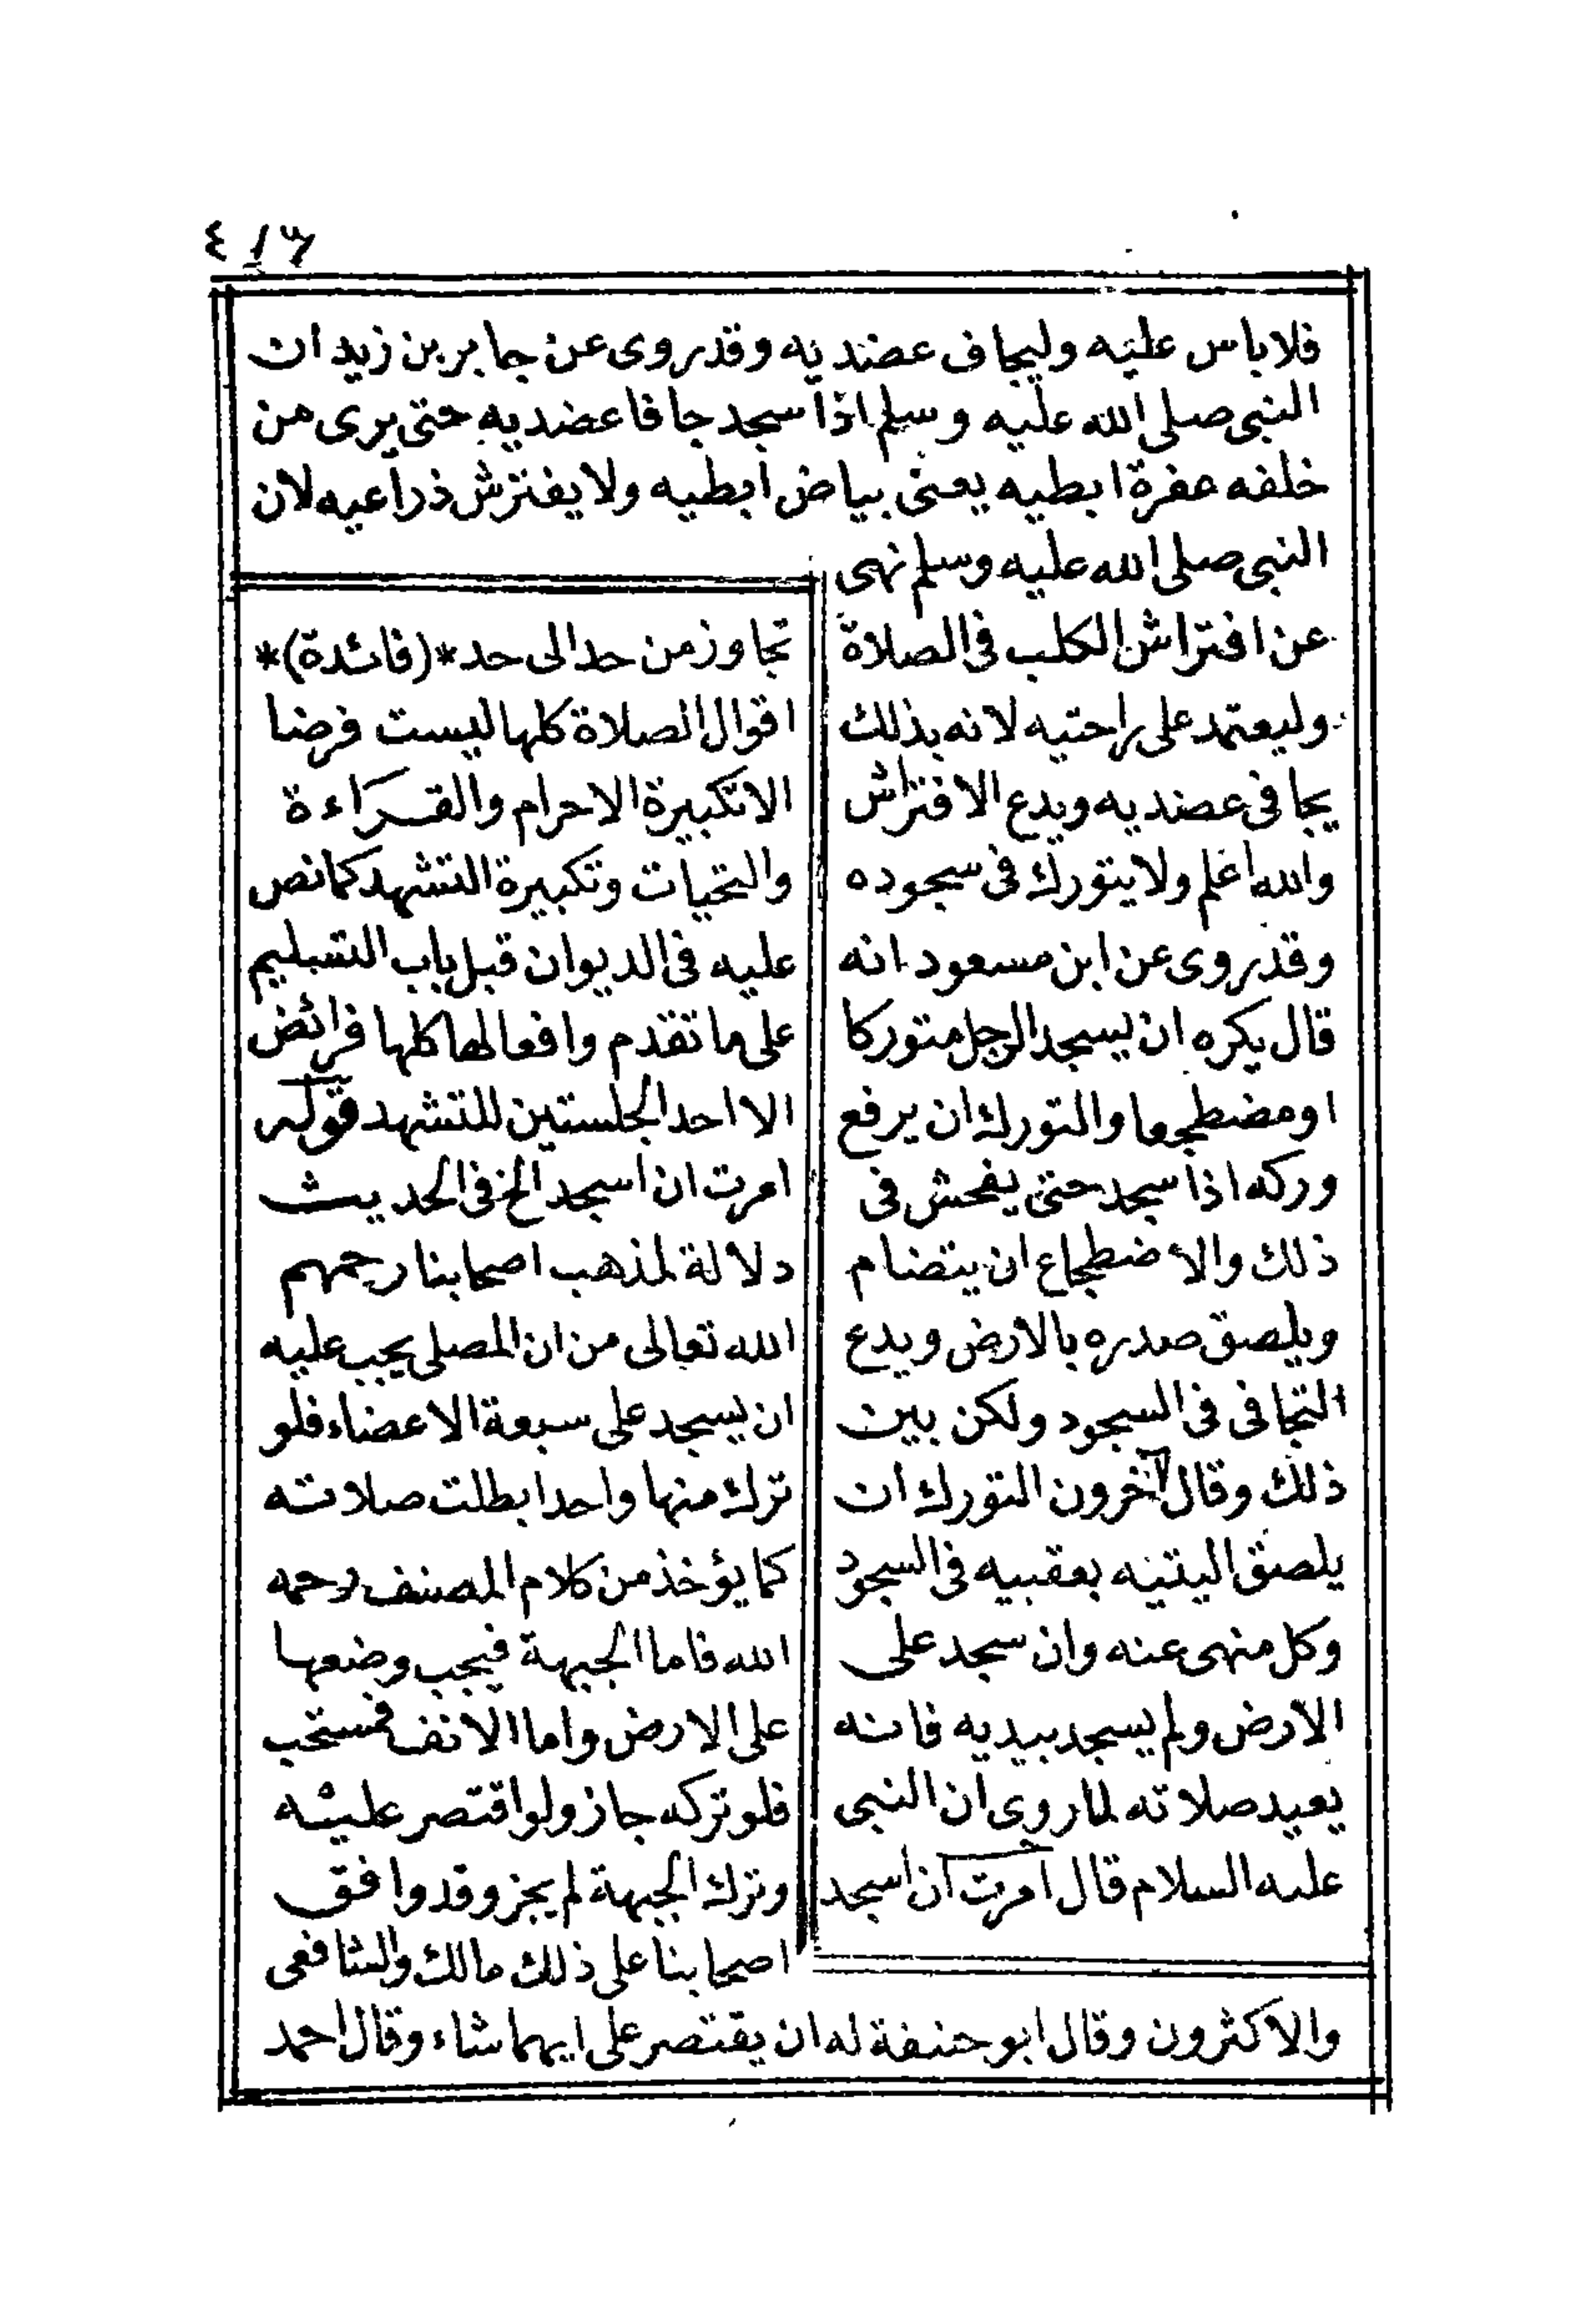 فلاباس عليه وليجاف عضديه وقدروى عن جابربن زيدان
النبى صلى الله عليه وسلم اذا سجد جافا عضديه حتى يرى من
خلفه عفرة ابطيه يعنى بياض ابطيه ولا يفترش ذراعيه لان
النبى صلى الله عليه وسلم نهى
عن افتراش الكلب فى الصلاة
وليعتمد على راحتيه لانه بذلك
يجافى عضديه ويدع الافتراش
والله اعلم ولا يتورك فى سجوده
وقدروى عن ابن مسعود انه
قال يكره ان يسجد الرجل متوركا
اومضطجعا والتورك ان يرفع
وركه اذا سجد حتى يفحش فى
ذلك والاضطجاع ان يتضام
ويلصق صدره بالارض ويدع
التجافى فى السجود ولكن بين
ذلك وقال آخرون التورك ان
يلصق اليتيه بعقبيه فى السجود
وكل منهى عنه وان سجد على
الارض ولم يسجد بيديه فانه
يعيد صلاته لما روى ان النبى
عليه السلام قال امرت ان اسجد
تجاوز من حد الى حد *(فائدة)*
اقوال الصلاة كلها ليست فرضا
الا تكبيرة الاحرام والقراءة
والتحيات وتكبيرة التشهد كما نص
عليه فى الديوان قبل باب التسليم
على ما تقدم وافعالها كلها فرائض
الا احد الجلستين للتشهد قوله
امرت ان اسجد الخ فى الحديث
دلالة لمذهب اصحابنا رحمهم
الله تعالى من ان المصلى يجب عليه
ان يسجد على سبعة الاعضاء فلو
ترك منها واحدا بطلت صلاته
كما يؤخذ من كلام المصنف رحمه
الله فاما الجبهة فيجب وضعها
على الارض واما الانف فمستحب
فلو تركه جاز ولو اقتصر عليه
وترك الجبهة لم يجز وقد وافق
اصحابنا على ذلك مالك والشافعى
والاكثرون وقال ابو حنيفة له ان يقتصر على ايهما شاء وقال احمد